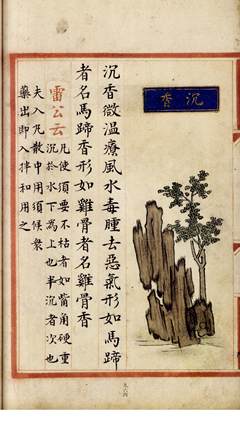 沉香
沉香微溫療風水毒腫去惡氣形如馬蹄
者名馬蹄香形如雞骨者名雞骨香
雷公云
凡使須要不枯者如觜角硬重
沉於水下為上也半沉者次也
夫入丸散中用須候衆
藥出即入拌和用之